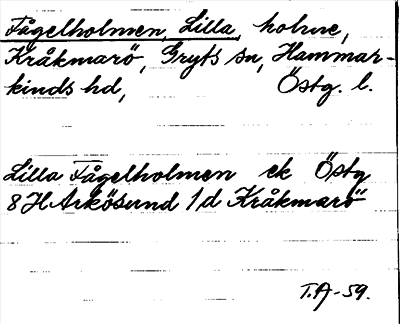 Fågelholmen, Lilla, holme,
Kråkmarö, Gryts sn, Hammar-
kinds hd, Östg. l.
Lilla Fågelholmen ek Östg
8H Arkösund 1d Kråkmarö
T.A-59.